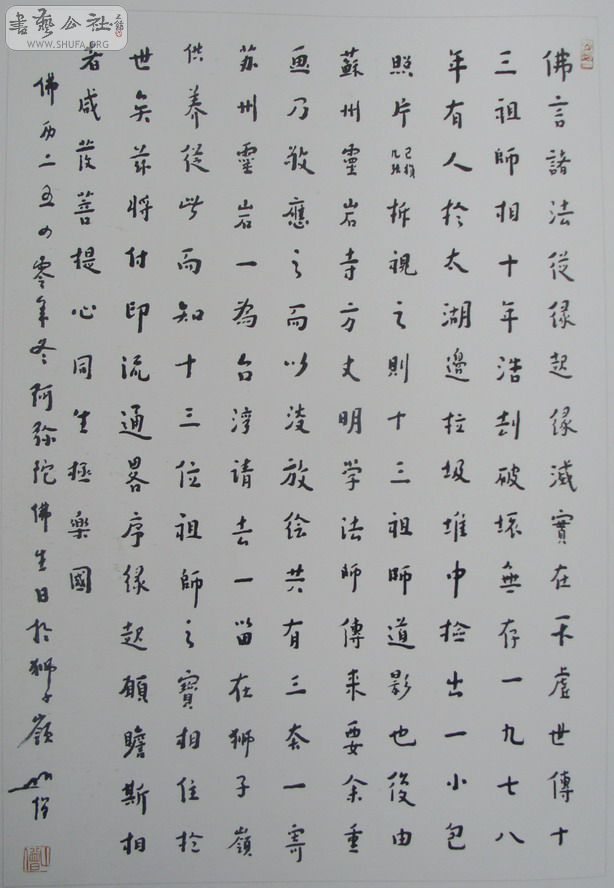 佛言諸法從缘起缘滅實在不虛世傳十
三祖師相十年浩刦破壞無存一九七八
年有人於太湖邊垃圾堆中撿出一小包
照片拆視之則十三祖師道影也後由
蘇州靈岩寺方丈明学法師傳来要余重
画乃敬應之而以放绘共有三套一寄
苏州靈岩一為台湾請去一留在狮子嶺
供养從此而知十三位祖師之寶相住於
世矣兹將付印流通畧序缘起願瞻斯相
者咸发菩提心同生極樂國
佛历二五四零年冬阿弥陀佛生日於狮子嶺
書藝公社
WWW.SHUFA.ORG